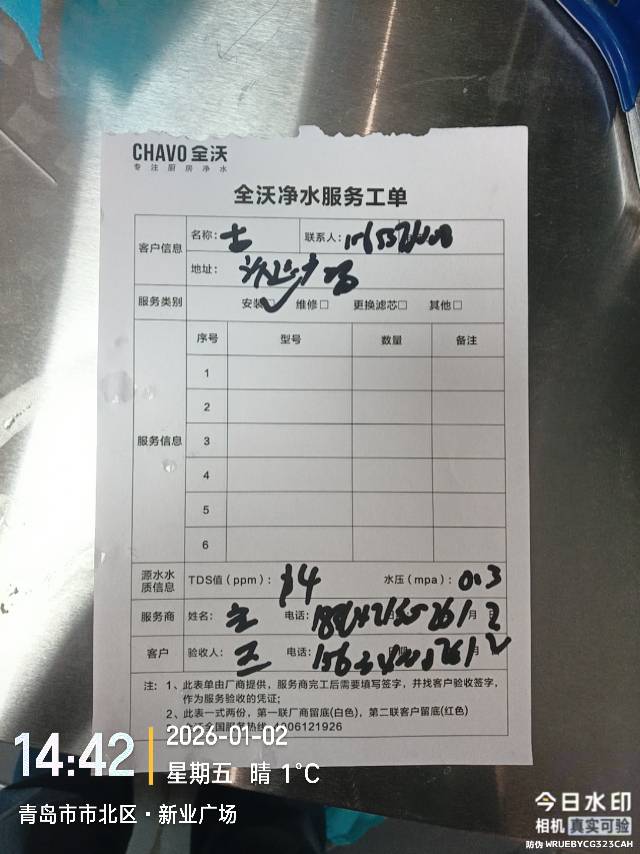 CHAVO 全沃
专注厨房净水
全沃净水服务工单
客户信息
名称：
联系人：
地址：
服务类别
安装 维修□ 更换滤芯□ 其他□
服务信息
序号 型号 数量 备注
1
2
3
4
5
6
源水水质信息
TDS值（ppm）： 水压（mpa）：0.3
服务商
姓名： 电话： 月
客户
验收人：王 电话： 月
注：1、此表单由厂商提供，服务商完工后需要填写签字，并找客户验收签字，
作为服务验收的凭证；
2、此表一式两份，第一联厂商留底(白色)，第二联客户留底(红色)
全国服务热线：4006121926
14:42
2026-01-02
星期五 晴 1℃
青岛市市北区·新业广场
今日水印
相机 真实可验
防伪 WRUEBYCG323CAH